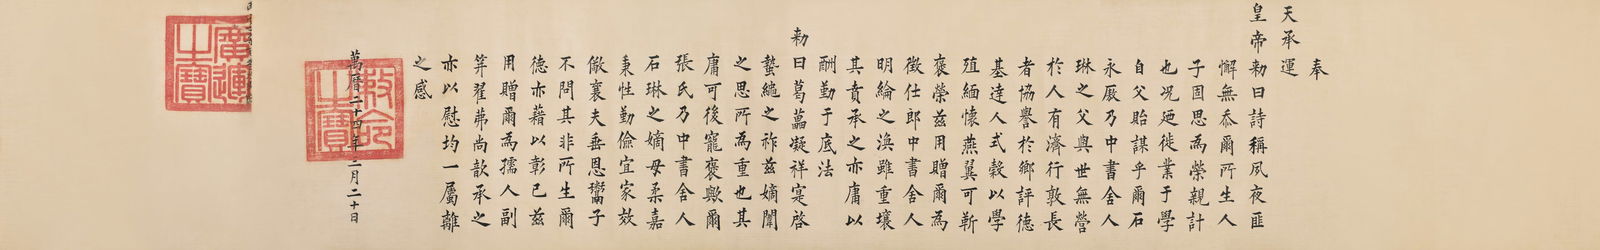 奉
天承運
皇帝勅曰詩稱夙夜匪
懈無忝爾所生人
子固思為榮親計
也况廼徙業于學
自父貽謀乎爾石
永厫乃中書舍人
琳之父與世無營
於人有濟行敦長
者協譽於鄉評德
基達人式穀以學
殖緬懷燕翼可靳
褒榮茲用贈爾為
徵仕郎中書舍人
明綸之渙雖重壤
其賁承之亦庸以
酬勤于底法
勅曰葛藟凝祥寔啓
蟄繩之祚茲嫡閫
之思所為重也其
庸可後寵褒歟爾
張氏乃中書舍人
石琳之嫡母柔嘉
秉性勤儉宜家效
儆襄夫垂恩鬻子
不問其非所生爾
德亦藉以彰已茲
用贈爾為孺人副
筓翟茀尚歆承之
亦以慰均一屬離
之感
萬曆二十四年二月二十日
敕命之寶
廣運之寶